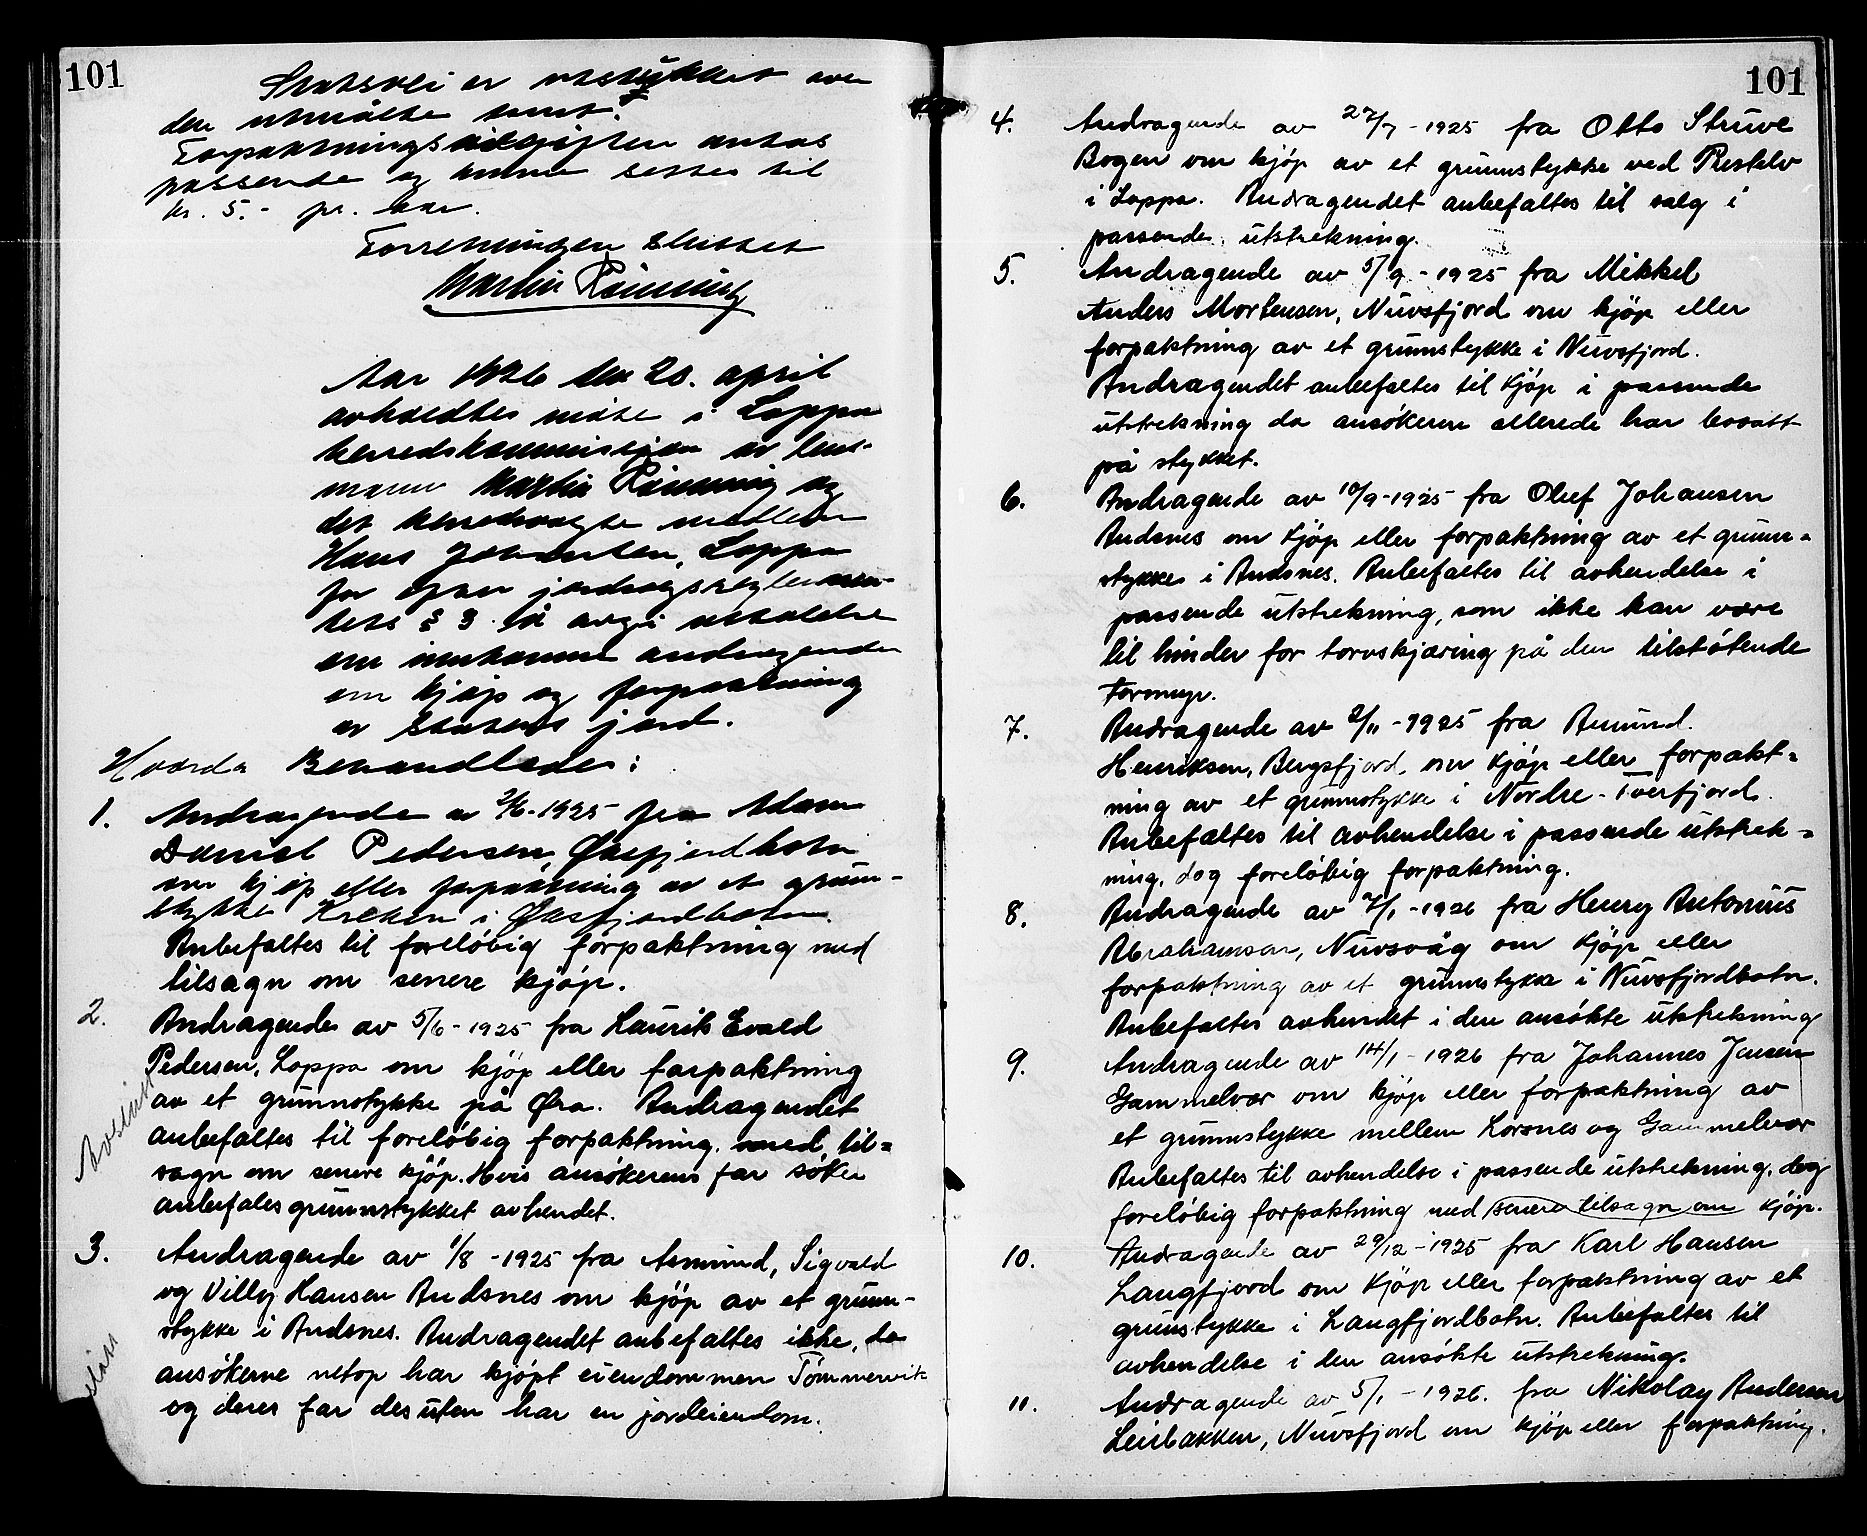 101
Statsvei er utstukket over
den utmålte tomt.
Forpaktningsavgiften antas
passende og kunne settes til
kr. 5.- pr. aar.
Forretningen sluttet
Martin Rimming
Aar 1926 den 20. april
avholdtes møte i Loppa
herredskommission av lens-
mann Martin Rimming og
det herredsvalgte medlem
Hans Johansen, Loppa
for efter jordsalgsreglemen-
tets § 3 å avgi uttalelse
om innkomne andragender
om kjøp og forpaktning
av statens jord.
Hvorda Behandledes:
1. Andragende av 2/6-1925 fra Adam
Daniel Pedersen, Øksfjordbotn
om kjøp eller forpaktning av et grunn-
stykke Kroken i Øksfjordbotn.
Anbefaltes til foreløbig forpaktning med
tilsagn om senere kjøp.
2. Andragende av 5/6-1925 fra Laurits Evald
Pedersen, Loppa om kjøp eller forpaktning
av et grunnstykke på Øra. Andragendet
anbefaltes til foreløbig forpaktning med til-
sagn om senere kjøp. Hvis ansøkerens far søker
anbefales grunnstykket avhendet.
3. Andragende av 1/8-1925 fra Asmund, Sigvald
og Villy Hansen Andsnes om kjøp av et grunn-
stykke i Andsnes. Andragendet anbefaltes ikke, da
ansøkerne netop har kjøpt eiendommen Tømmervik
og deres far desuten har en jordeiendom.
101
4. Andragende av 27/7-1925 fra Otto Struve
Bogen om kjøp av et grunnstykke ved Prestelv
i Loppa. Andragendet anbefaltes til salg i
passende utstrekning.
5. Andragende av 5/9-1925 fra Mikkel
Anders Mortensen, Nuvsfjord om kjøp eller
forpaktning av et grunnstykke i Nuvsfjord.
Andragendet anbefaltes til kjøp i passende
utstrekning da ansøkeren allerede har bosatt
på stykket.
6. Andragende av 10/9-1925 fra Oluf Johansen
Andsnes om kjøp eller forpaktning av et grunn-
stykke i Andsnes. Anbefaltes til avhendelse i
passende utstrekning, som ikke kan være
til hinder for torvskjæring på den tilstøtende
Tormyr.
7. Andragende av 2/11-1925 fra Amund
Henriksen, Bergsfjord om kjøp eller forpakt-
ning av et grunnstykke i Nordre-Tverfjord.
Anbefaltes til avhendelse i passende utstrek-
ning, dog foreløbig forpaktning.
8. Andragende av 7/1-1926 fra Henry Antonius
Abrahamsen, Nuvsvåg om kjøp eller
forpaktning av et grunnstykke i Nuvsfjordbotn.
Anbefaltes avhendet i den ansøkte utstrekning
9. Andragende av 14/1-1926 fra Johannes Jensen
Gammelvær om kjøp eller forpaktning av
et grunnstykke mellem Korsnes og Gammelvær
Anbefaltes til avhendelse i passende utstrekning, dog
foreløbig forpaktning med senere tilsagn om kjøp.
10. Andragende av 29/12-1925 fra Karl Hansen
Langfjord om kjøp eller forpaktning av et
grunnstykke i Langfjordbotn. Anbefaltes til
avhendelse i den ansøkte utstrekning.
11. Andragende av 5/1-1926. fra Nikolay Andersen
Leirbakken, Nuvsfjord om kjøp eller forpaktning.